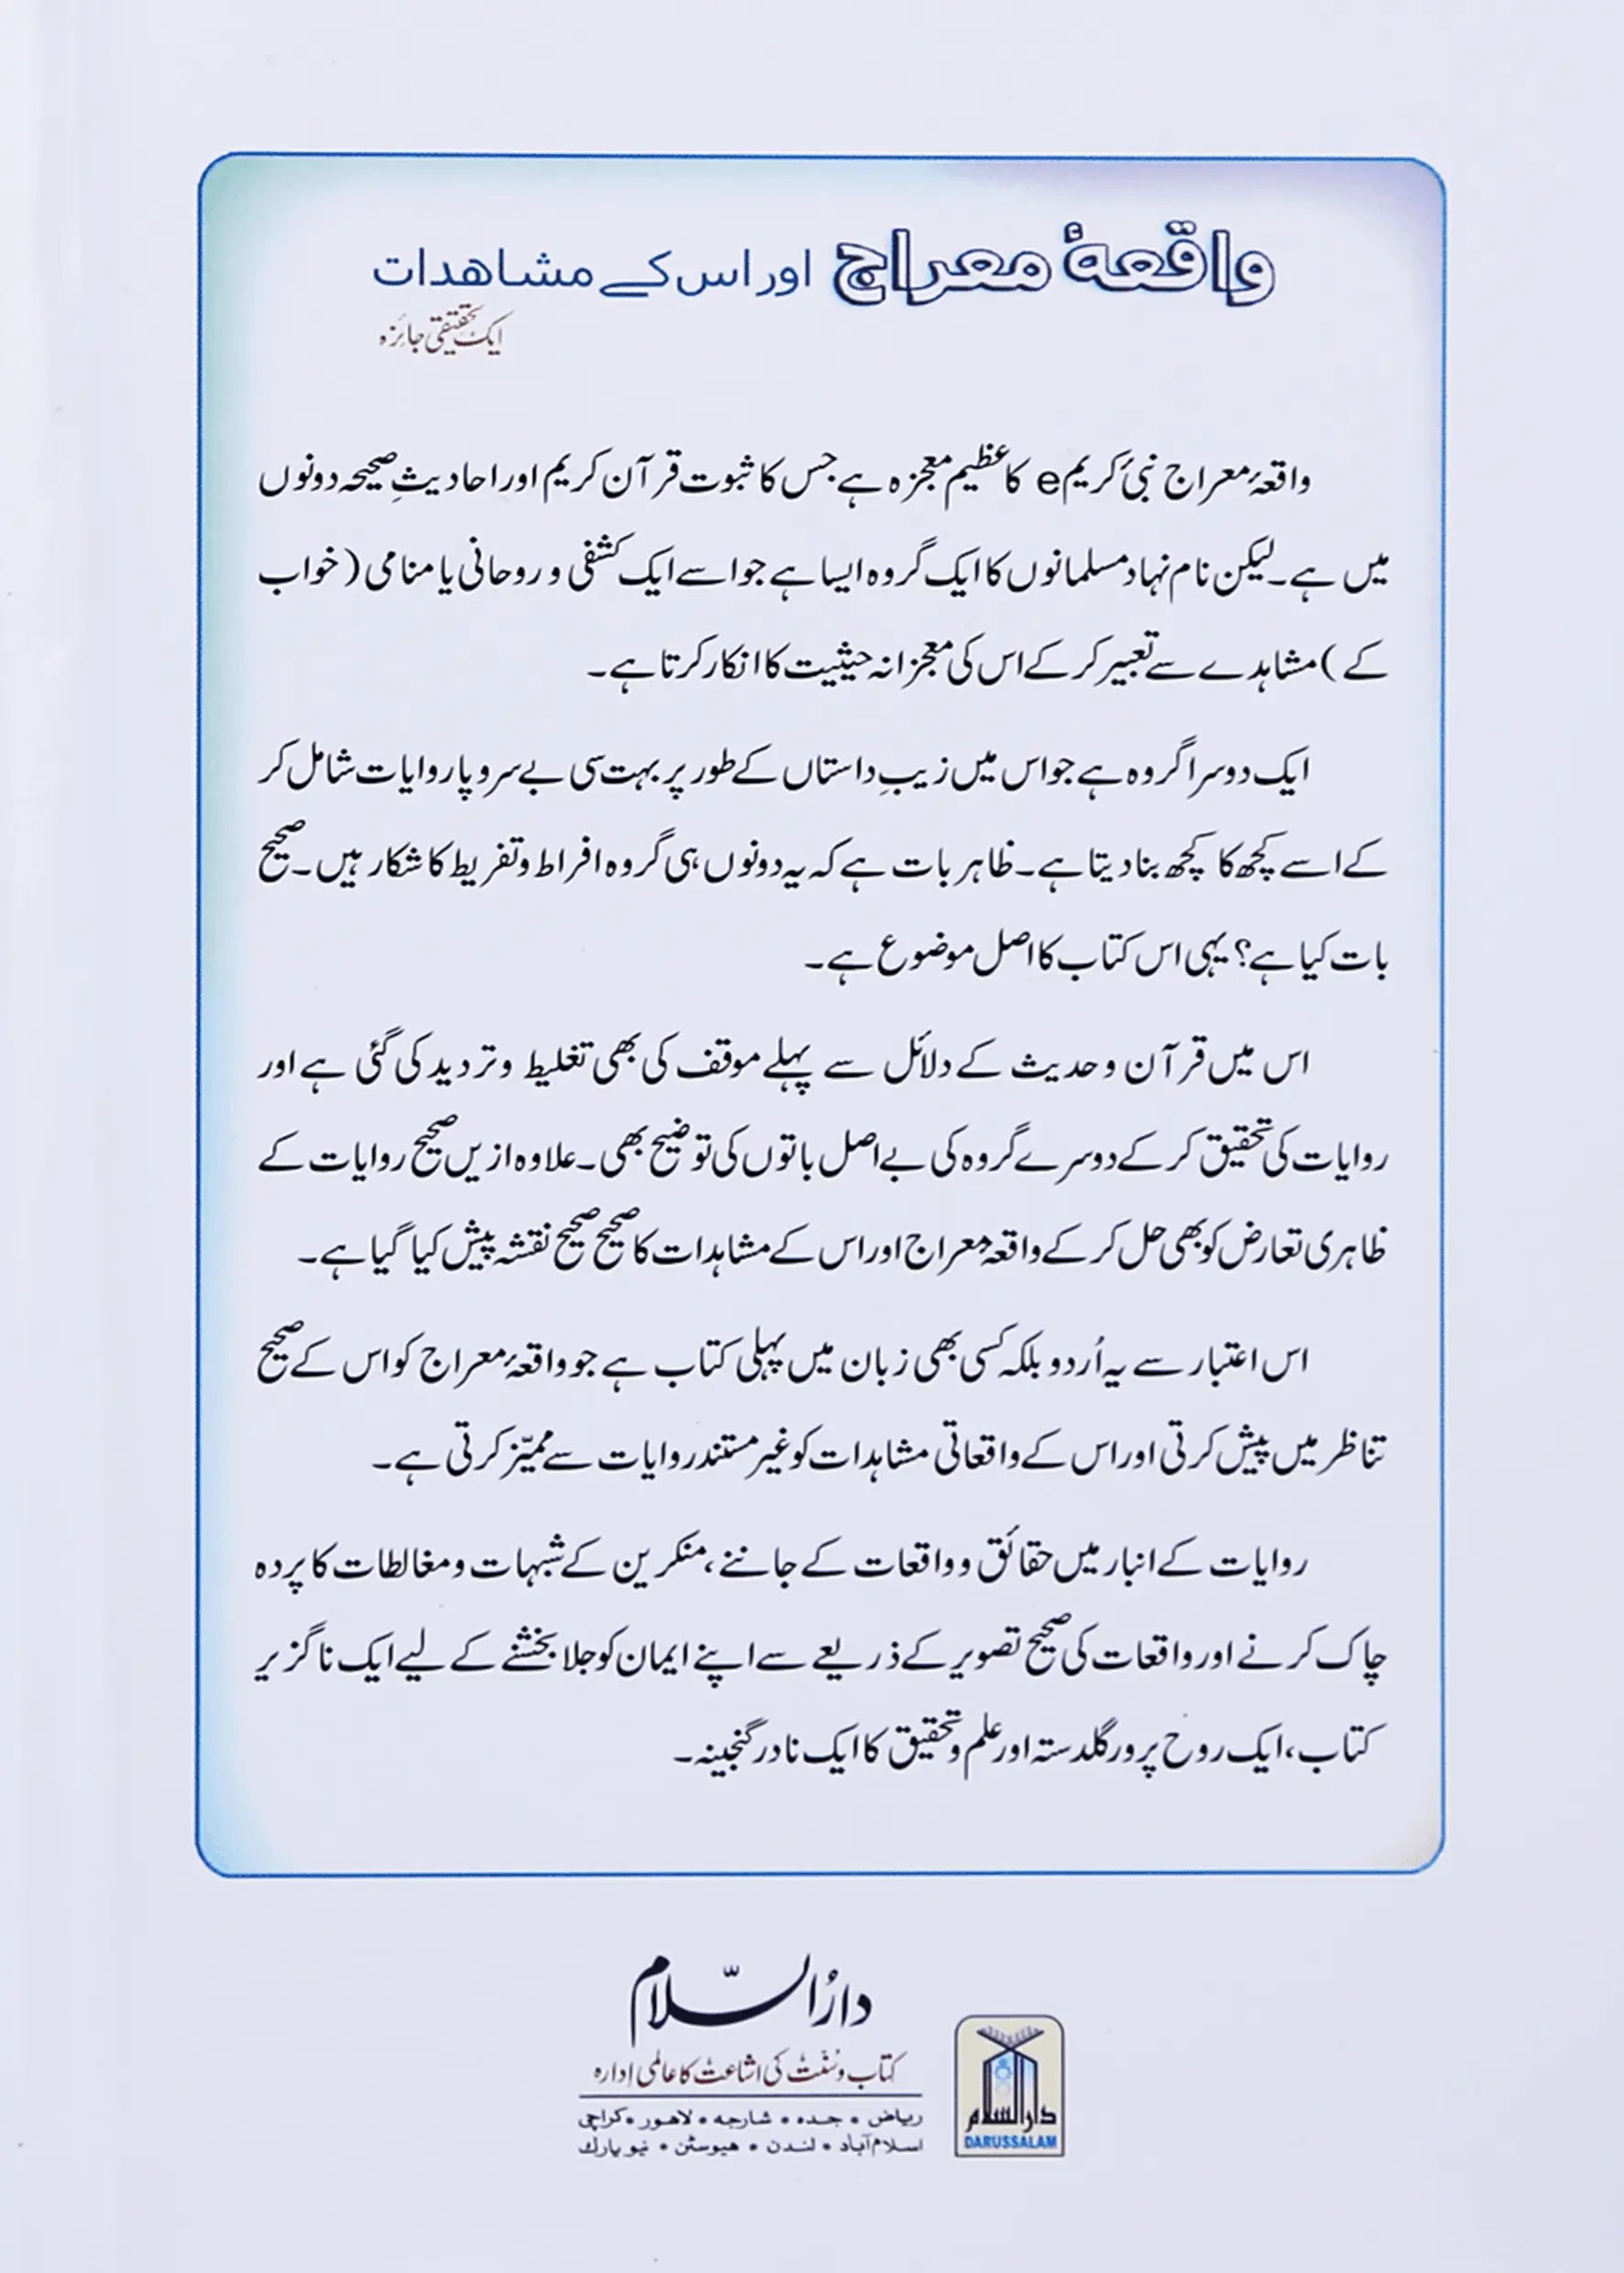 واقعۂ معراج اور اس کے مشاهدات
ایک تحقیقی جائزہ
واقعۂ معراج نبیٔ کریم e کا عظیم معجزہ ہے جس کا ثبوت قرآن کریم اور احادیثِ صحیحہ دونوں
میں ہے۔ لیکن نام نہاد مسلمانوں کا ایک گروہ ایسا ہے جو اسے ایک کشفی و روحانی یا منامی (خواب
کے) مشاہدے سے تعبیر کر کے اس کی معجزانہ حیثیت کا انکار کرتا ہے۔
ایک دوسرا گروہ ہے جو اس میں زیبِ داستاں کے طور پر بہت سی بے سر و پا روایات شامل کر
کے اسے کچھ کا کچھ بنا دیتا ہے۔ ظاہر بات ہے کہ یہ دونوں ہی گروہ افراط و تفریط کا شکار ہیں۔ صحیح
بات کیا ہے؟ یہی اس کتاب کا اصل موضوع ہے۔
اس میں قرآن و حدیث کے دلائل سے پہلے موقف کی بھی تغلیط و تردید کی گئی ہے اور
روایات کی تحقیق کر کے دوسرے گروہ کی بے اصل باتوں کی توضیح بھی۔ علاوہ ازیں صحیح روایات کے
ظاہری تعارض کو بھی حل کر کے واقعۂ معراج اور اس کے مشاہدات کا صحیح صحیح نقشہ پیش کیا گیا ہے۔
اس اعتبار سے یہ اُردو بلکہ کسی بھی زبان میں پہلی کتاب ہے جو واقعۂ معراج کو اس کے صحیح
تناظر میں پیش کرتی اور اس کے واقعاتی مشاہدات کو غیر مستند روایات سے ممیّز کرتی ہے۔
روایات کے انبار میں حقائق و واقعات کے جاننے، منکرین کے شبہات و مغالطات کا پردہ
چاک کرنے اور واقعات کی صحیح تصویر کے ذریعے سے اپنے ایمان کو جلا بخشنے کے لیے ایک ناگزیر
کتاب، ایک روح پرور گلدستہ اور علم و تحقیق کا ایک نادر گنجینہ۔
دارُالسّلام
کتاب و سُنّت کی اشاعت کا عالمی اِدارہ
ریاض • جدہ • شارجہ • لاهور • کراچی
اسلام آباد • لندن • هیوسٹن • نیو یارك
دارالسلام
DARUSSALAM